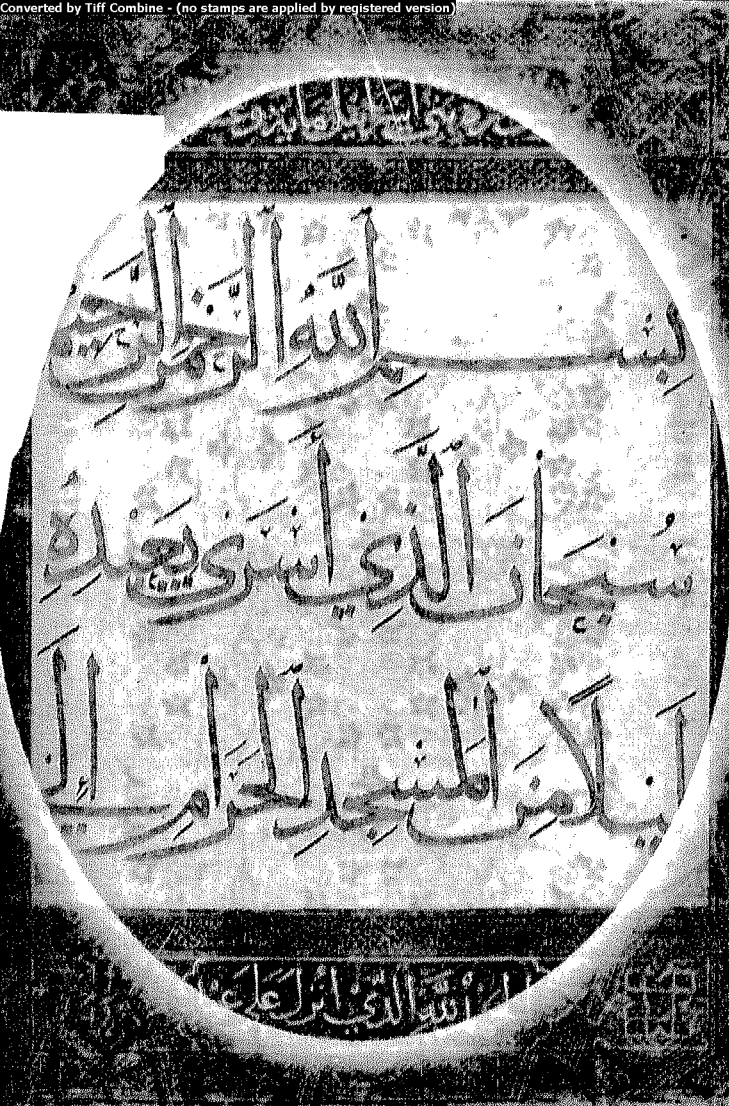 Converted by Tiff Combine - (no stamps are applied by registered version)
بِسْمِ اللَّهِ الرَّحْمَنِ الرَّحِيمِ
سُبْحَانَ الَّذِي أَسْرَى بِعَبْدِهِ
لَيْلًا مِنَ الْمَسْجِدِ الْحَرَامِ إِلَى
لله الذي انزل على